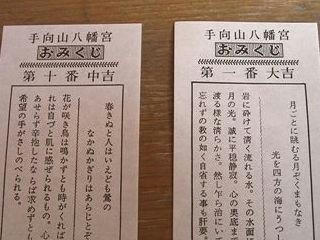 手向山八幡宮
おみくじ
第一番 大吉
月ごとに眺むる月ぞくまもなき
光を四方の海にうつ
岩に砕けて清く流れる水。その水面に
月の光。誠に平穏静寂、心の奥底ま
渡る様な清らかさ。然し乍ら治にいて
忘れずの教の如く自省する事も肝要
手向山八幡宮
おみくじ
第十番 中吉
春きぬと人はいえども鶯の
なかぬかぎりはあらじとぞ
花が咲き鳥は鳴かずとも時がくれば
れは自づと肌に感ぜられるもの。心
あせらず辛抱したならば求めずと
希望の手がさしのべられる。